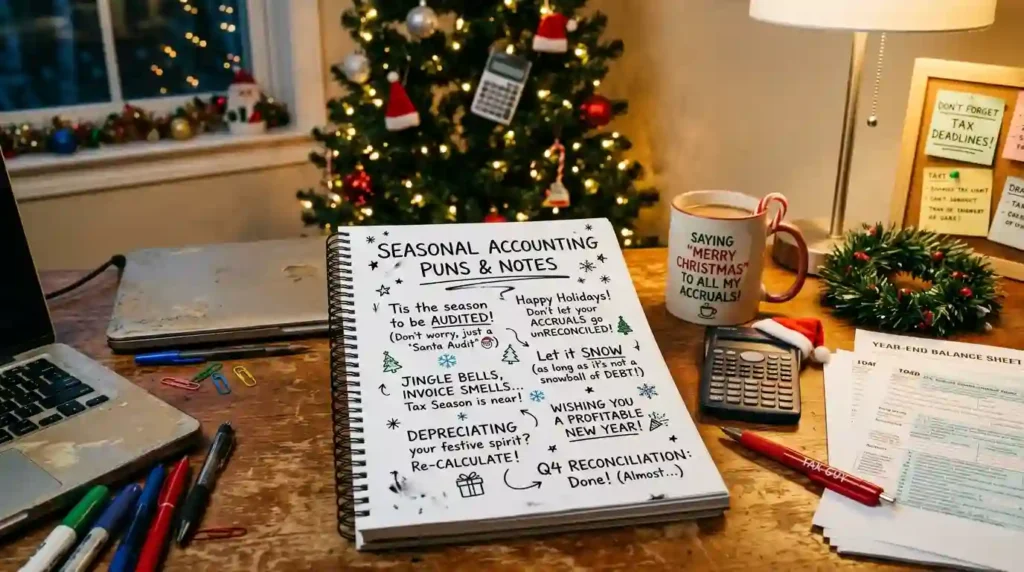 SEASONAL ACCOUNTING
PUNS & NOTES
'Tis the season
to be AUDITED!
(Don't worry, just a
"Santa Audit")
Happy Holidays!
Don't let your
ACCRUALS go
unRECONCILED!
JINGLE BELLS,
INVOICE SMELLS...
Tax Season is near!
Let it SNOW
(as long as it's not a
snowball of DEBT!)
DEPRECIATING
your festive spirit?
Re-CALCULATE!
WISHING YOU
A PROFITABLE
NEW YEAR!
Q4 RECONCILIATION:
Done! (Almost...)
SAYING
"MERRY
CHRISTMAS"
TO ALL MY
ACCRUALS!
DON'T FORGET
TAX
DEADLINES!
YEAR-END BALANCE SHEET
TAX GUY